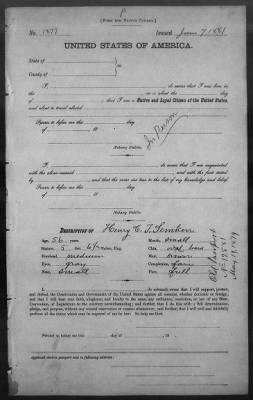 [FORM FOR NATIVE CITIZEN.]
No. 1877 Issued June 7 1881
UNITED STATES OF AMERICA.
State of
County of
I, do swear that I was born in
the on or about the day of
that I am a Native and Loyal Citizen of the United States,
and about to travel abroad
Sworn to before me this day
of 18
Notary Public.
In Person
I, do swear that I am acquainted
with the above-named and with the facts stated
by and that the same are true to the best of my knowledge and belief.
Sworn to before me this day
of 18
Notary Public.
DESCRIPTION OF Henry C. T.
Age, 56 years Mouth, small
Stature, 5 feet, inches, Eng. Chin,
Forehead, medium Hair, brown
Eyes, gray Complexion, fair
Nose, small Face, full
Old Passport
I, do solemnly swear that I will support, protect,
and defend the Constitution and Government of the United States against all enemies, whether domestic or foreign,
and that I will bear true faith, allegiance, and loyalty to the same, any ordinance, resolution, or law of any State,
Convention, or Legislature to the contrary notwithstanding; and further, that I do this with a full determination,
pledge, and purpose, without any mental reservation or evasion whatsoever; and further, that I will well and faithfully
perform all the duties which may be required of me by law: So help me God.
Sworn to before me this day of 18
Notary Public.
Applicant desires passport sent to